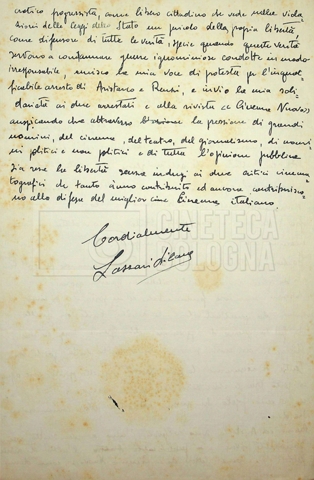 cratico progressista, come libero cittadino che vede nelle viola-
zioni delle leggi dello Stato un pericolo della propria libertà,
come difensore di tutte le verità, specie quando queste verità
servono a condannare guerre ignominiose condotte in modo
irresponsabile, unisco la mia voce di protesta per l'inqualificabile arresto di Aristarco e Renzi, e invio la mia soli-
darietà ai due arrestati e alla rivista "Cinema Nuovo"
auspicando che attraverso la pressione di grandi
uomini, del cinema, del teatro, del giornalismo, di uomi-
ni politici e non politici e di tutta l'opinione pubblica
sia resa la libertà senza indugi ai due critici cinema-
tografici che tanto hanno contribuito ed ancora contribuisco-
no alla difesa del miglior cine Cinema italiano.
Cordialmente
CINETECA
BOLOGNA